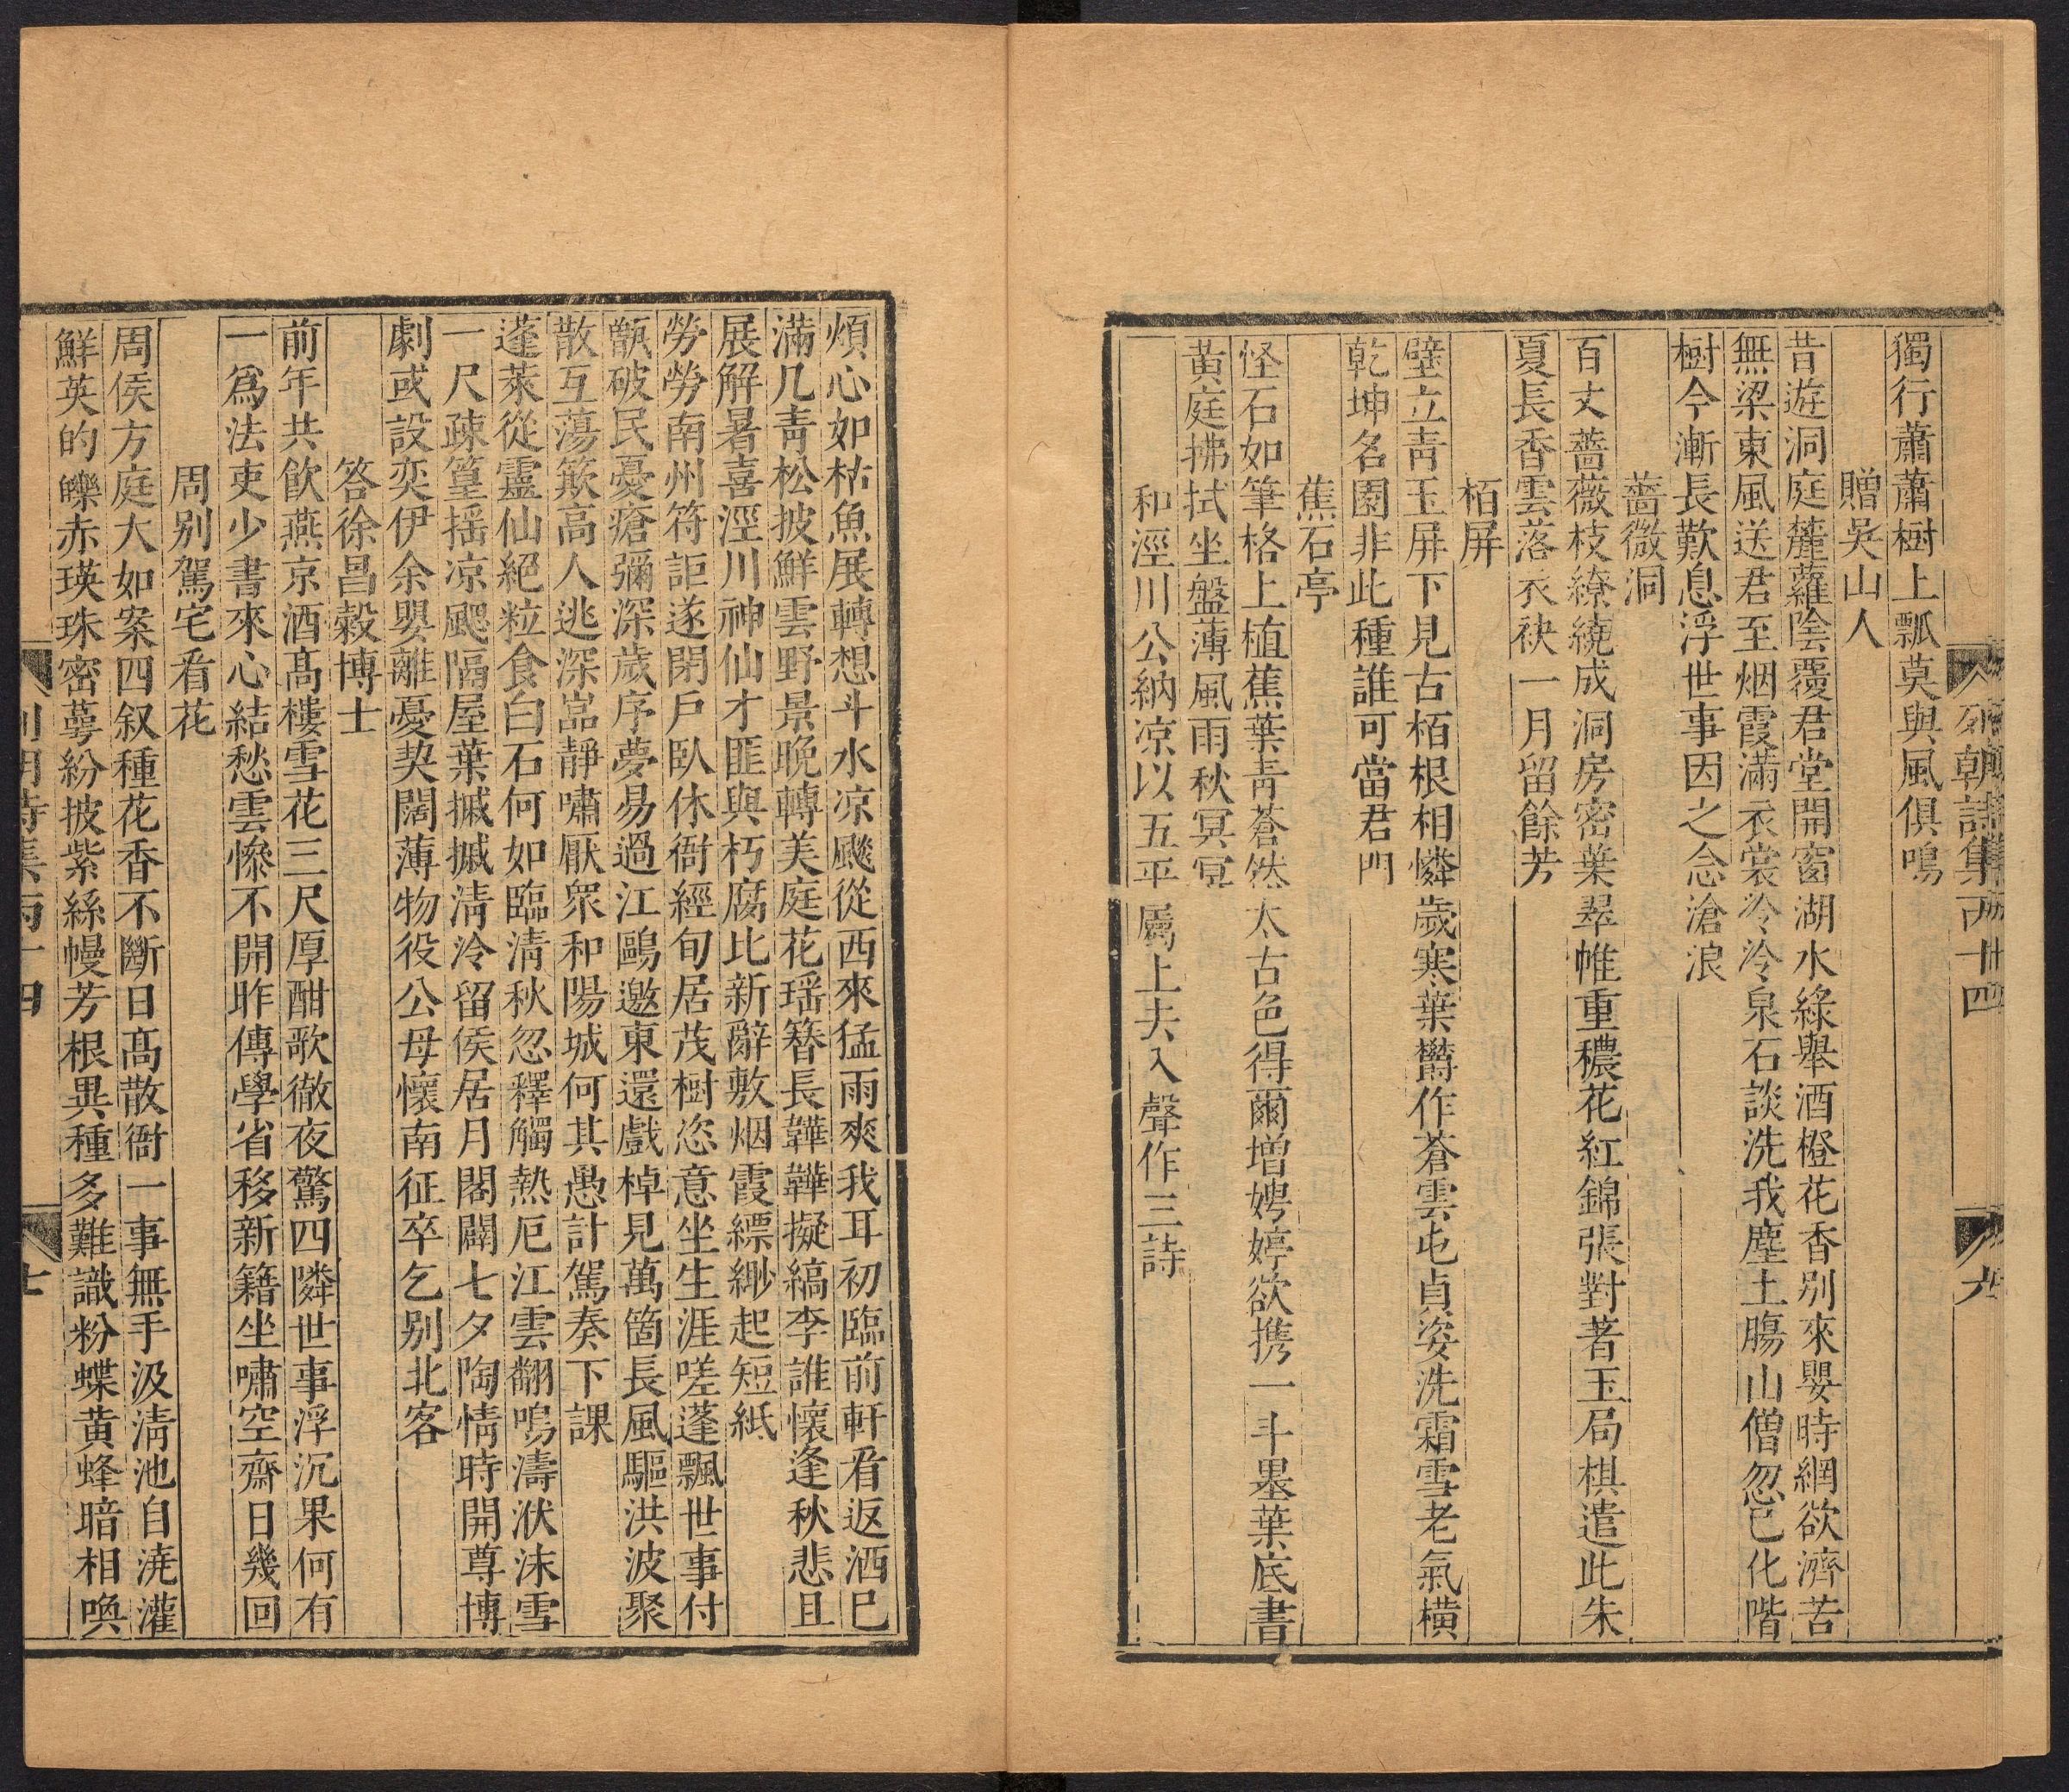 列朝詩集丙十四 九
獨行蕭蕭樹上瓢莫與風俱鳴
贈吳山人
昔遊洞庭麓蘿陰覆君堂開窗湖水綠舉酒橙花香别來嬰時網欲濟苦
無梁東風送君至烟霞滿衣裳泠泠泉石談洗我塵土腸山僧忽已化階
樹今漸長歎息浮世事因之念滄浪
薔薇洞
百丈薔薇枝繚繞成洞房密葉翠帷重穠花紅錦張對著玉局棋遣此朱
夏長香雲落衣袂一月留餘芳
栢屏
壁立青玉屏下見古栢根相憐歲寒葉欝作蒼雲屯貞姿洗霜雪老氣橫
乾坤名園非此種誰可當君門
蕉石亭
怪石如筆格上植蕉葉青蒼然太古色得爾增娉婷欲携一斗墨葉底書
黃庭拂拭坐盤薄風雨秋冥冥
和涇川公納凉以五平屬上去入聲作三詩
煩心如枯魚展轉想斗水凉飈從西來猛雨爽我耳初臨前軒看返洒已
滿几青松披鮮雲野景晚轉美庭花瑶簪長韡韡擬縞李誰懷逢秋悲且
展解暑喜涇川神仙才匪與朽腐比新辭敷烟霞縹緲起短紙
勞勞南州符詎遂閉戶臥休衙經旬居茂樹恣意坐生涯嗟蓬飄世事付
甑破民憂瘡彌深歲序夢易過江鷗邀東還戲棹見萬箇長風驅洪波聚
散互蕩簸高人逃深嵓靜嘯厭衆和陽城何其愚計駕奏下課
蓬萊從靈仙絕粒食白石何如臨清秋忽釋觸熱厄江雲翻鳴濤洑沫雪
一尺疎篁揺凉颸隔屋葉摵摵淸泠留侯居月閣闢七夕陶情時開尊博
劇或設奕伊余嬰離憂契闊薄物役公母懷南征卒乞别北客
答徐昌穀博士
前年共飲燕京酒髙樓雪花三尺厚酣歌徹夜驚四隣世事浮沉果何有
一爲法吏少書來心結愁雲慘不開昨傳學省移新籍坐嘯空齋日幾回
周别駕宅看花
周侯方庭大如案四叙種花香不斷日髙散衙一事無手汲淸池自澆灌
鮮英的皪赤瑛珠密蕚紛披紫絲幔芳根異種多難識粉蝶黃蜂暗相喚